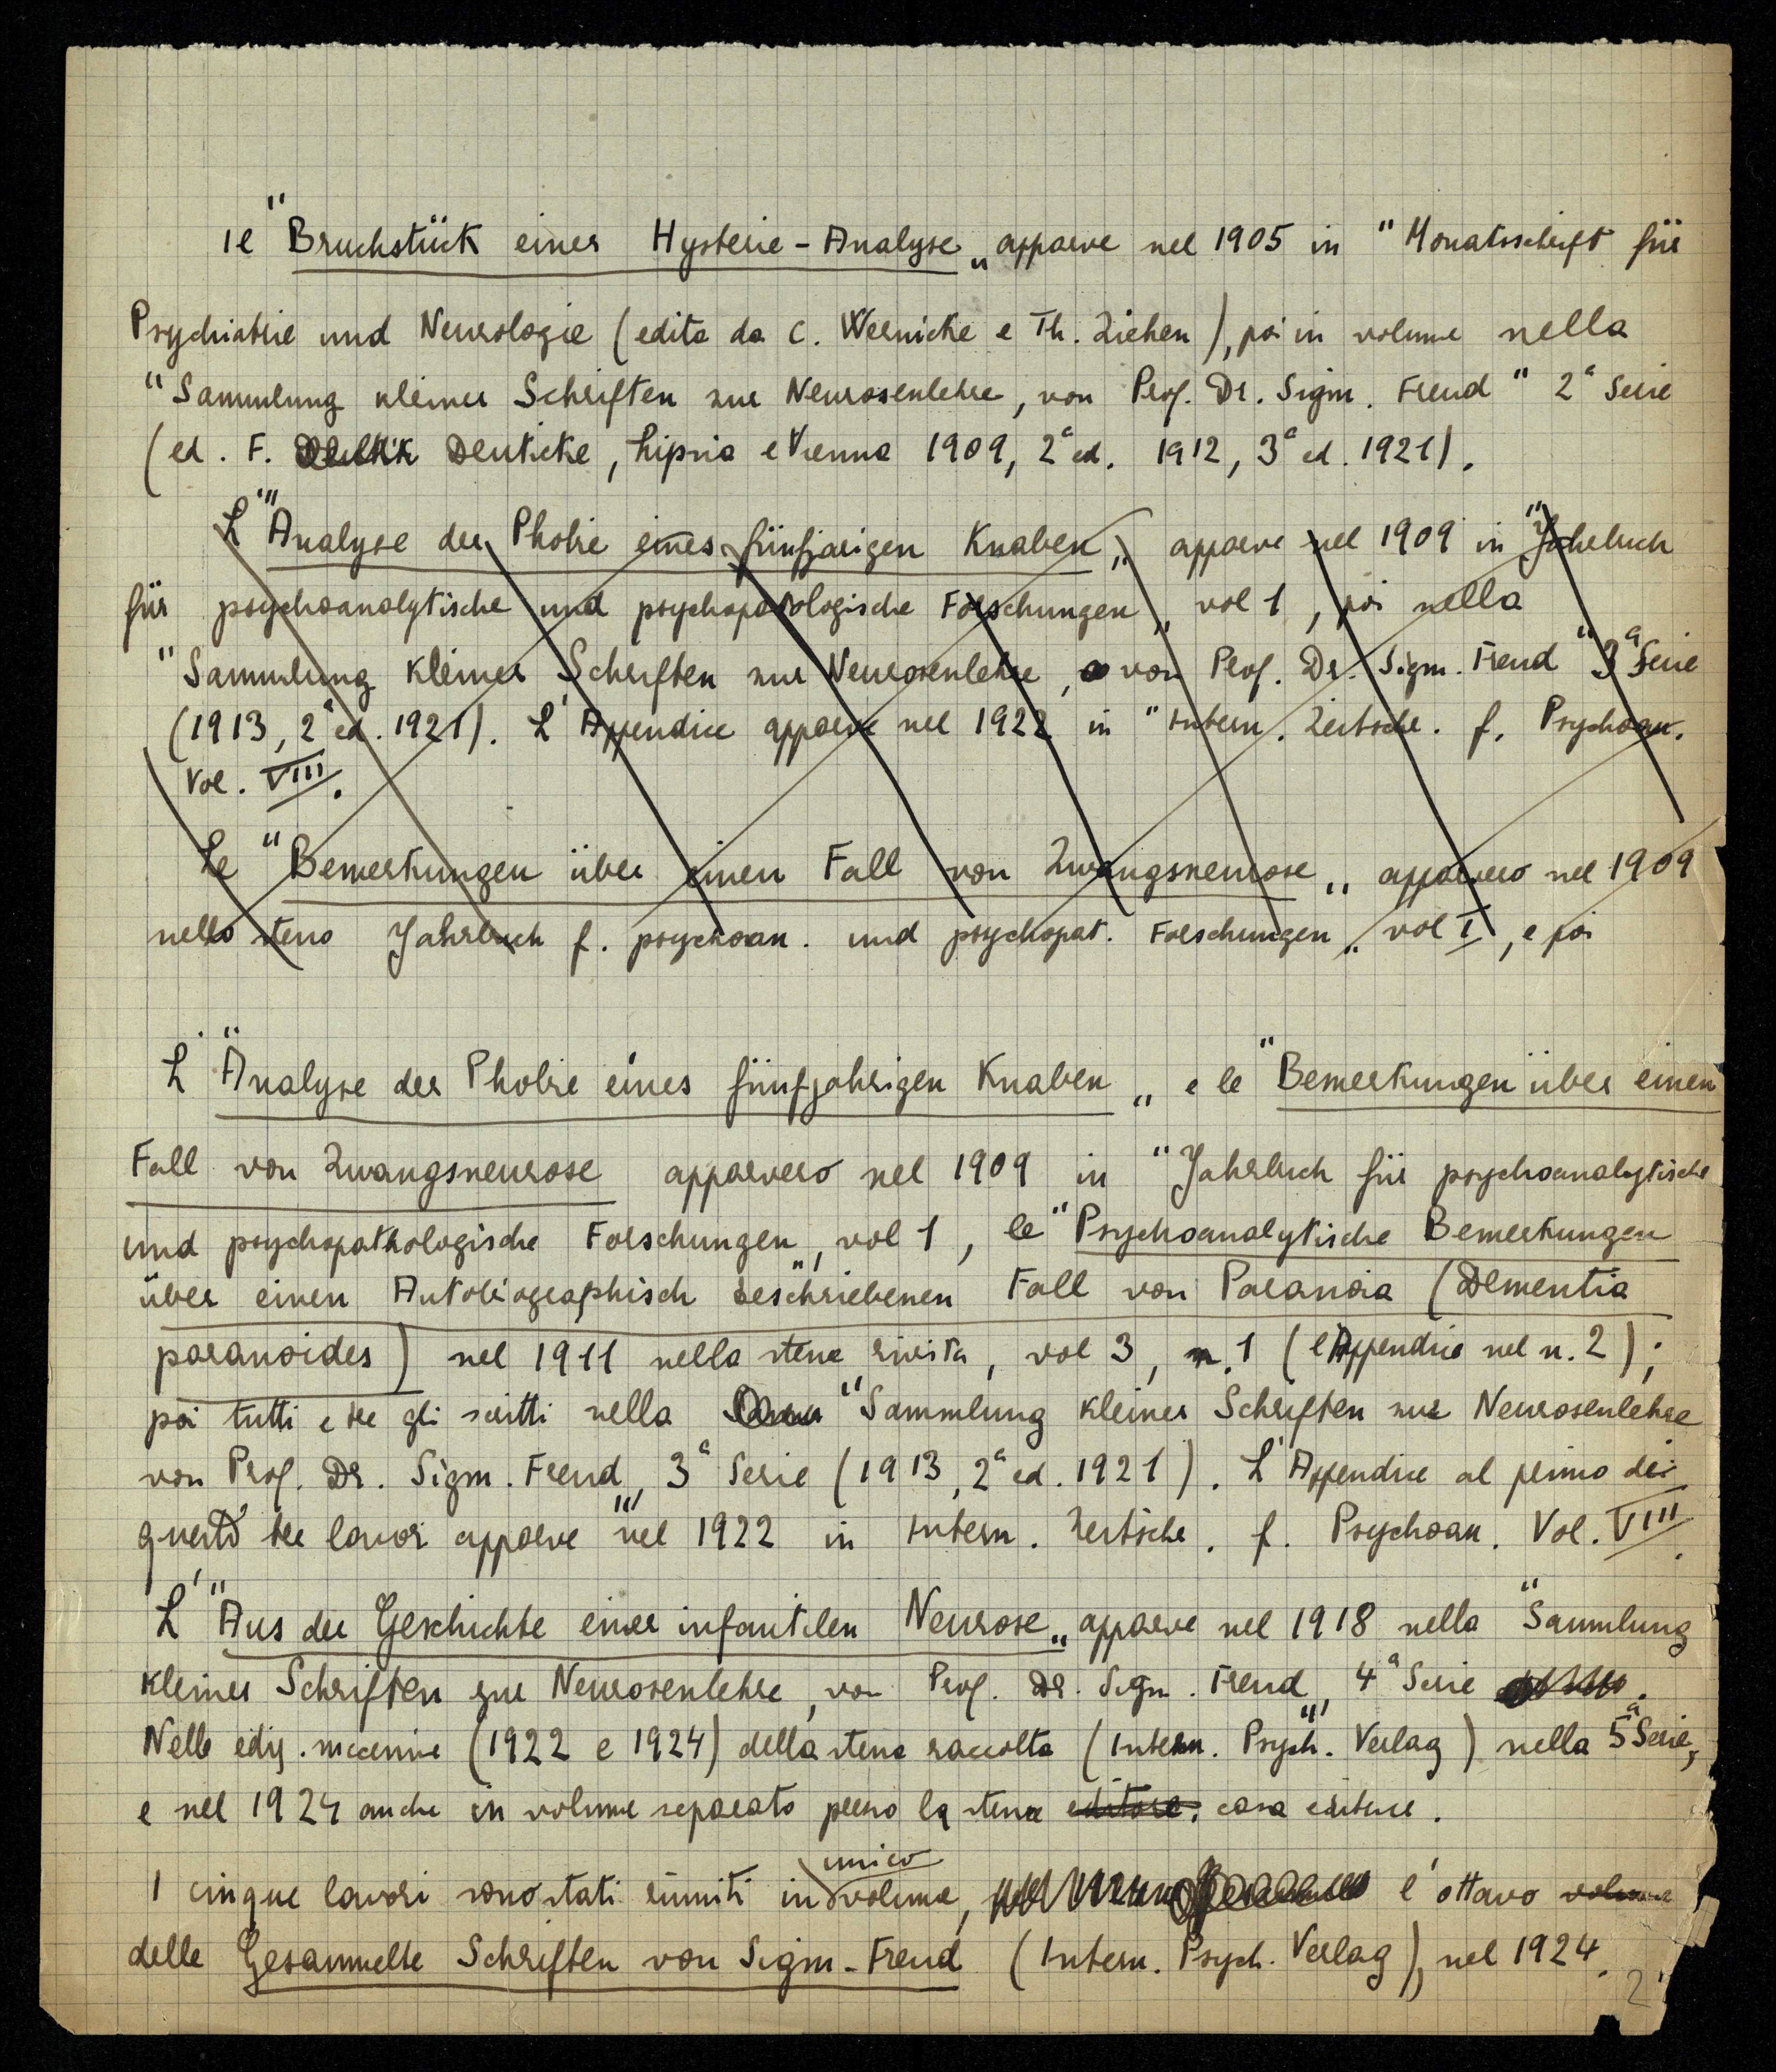 Il "Bruchstück einer Hysterie-Analyse„ apparve nel 1905 in "Monatsschrift für
Psychiatrie und Neurologie (edita da C. Wernicke e Th. Ziehen), poi in volume nella
"Sammlung kleiner Schriften zur Neurosenlehre, von Prof. Dr. Sigm. Freud" 2ª Serie
(ed. F. Deuticke, Lipsia e Vienna 1909, 2ª ed. 1912, 3ª ed. 1921).
L'"Analyse der Phobie eines fünfjarigen Knaben„ apparve nel 1909 in "Jahrbuch
für psychoanalytische und psychopatologische Forschungen„ vol 1, poi nella
"Sammlung kleiner Schriften zur Neurosenlehre, von Prof. Dr. Sigm. Freud" 3ª Serie
(1913, 2ª ed. 1921). L'Appendice apparve nel 1922 in "Intern. Zeitschr. f. Psychoan.
Vol. VIII.
Le "Bemerkungen über einen Fall von Zwangsneurose„ apparvero nel 1909
nello stesso Jahrbuch f. psychoan. und psychopat. Forschungen„ vol I, e poi
L'"Analyse der Phobie eines fünfjahrigen Knaben„ e le "Bemerkungen über einen
Fall von Zwangsneurose apparvero nel 1909 in "Jahrbuch für psychoanalytische
und psychopathologische Forschungen„, vol 1, le "Psychoanalytische Bemerkungen
über einen Autobiographisch beschriebenen Fall von Paranoia (Dementia
paranoides) nel 1911 nella stessa rivista, vol 3, n. 1 (l'Appendice nel n. 2);
poi tutti e tre gli scritti nella "Sammlung kleiner Schriften zur Neurosenlehre
von Prof. Dr. Sigm. Freud„ 3ª Serie (1913, 2ª ed. 1921). L'Appendice al primo dei
questi tre lavori apparve nel 1922 in Intern. Zeitschr. f. Psychoan. Vol. VIII.
L'"Aus der Geschichte einer infantilen Neurose„ apparve nel 1918 nella "Sammlung
kleiner Schriften zur Neurosenlehre, von Prof. Dr. Sigm. Freud„ 4ª Serie.
Nelle ediz. successive (1922 e 1924) della stessa raccolta (Intern. Psych. Verlag) nella 5ª Serie,
e nel 1924 anche in volume separato presso la stessa editore. casa editrice.
I cinque lavori sono stati riuniti in unico volume, l'ottavo volume
delle Gesammelte Schriften von Sigm. Freud (Intern. Psych. Verlag), nel 1924.
2